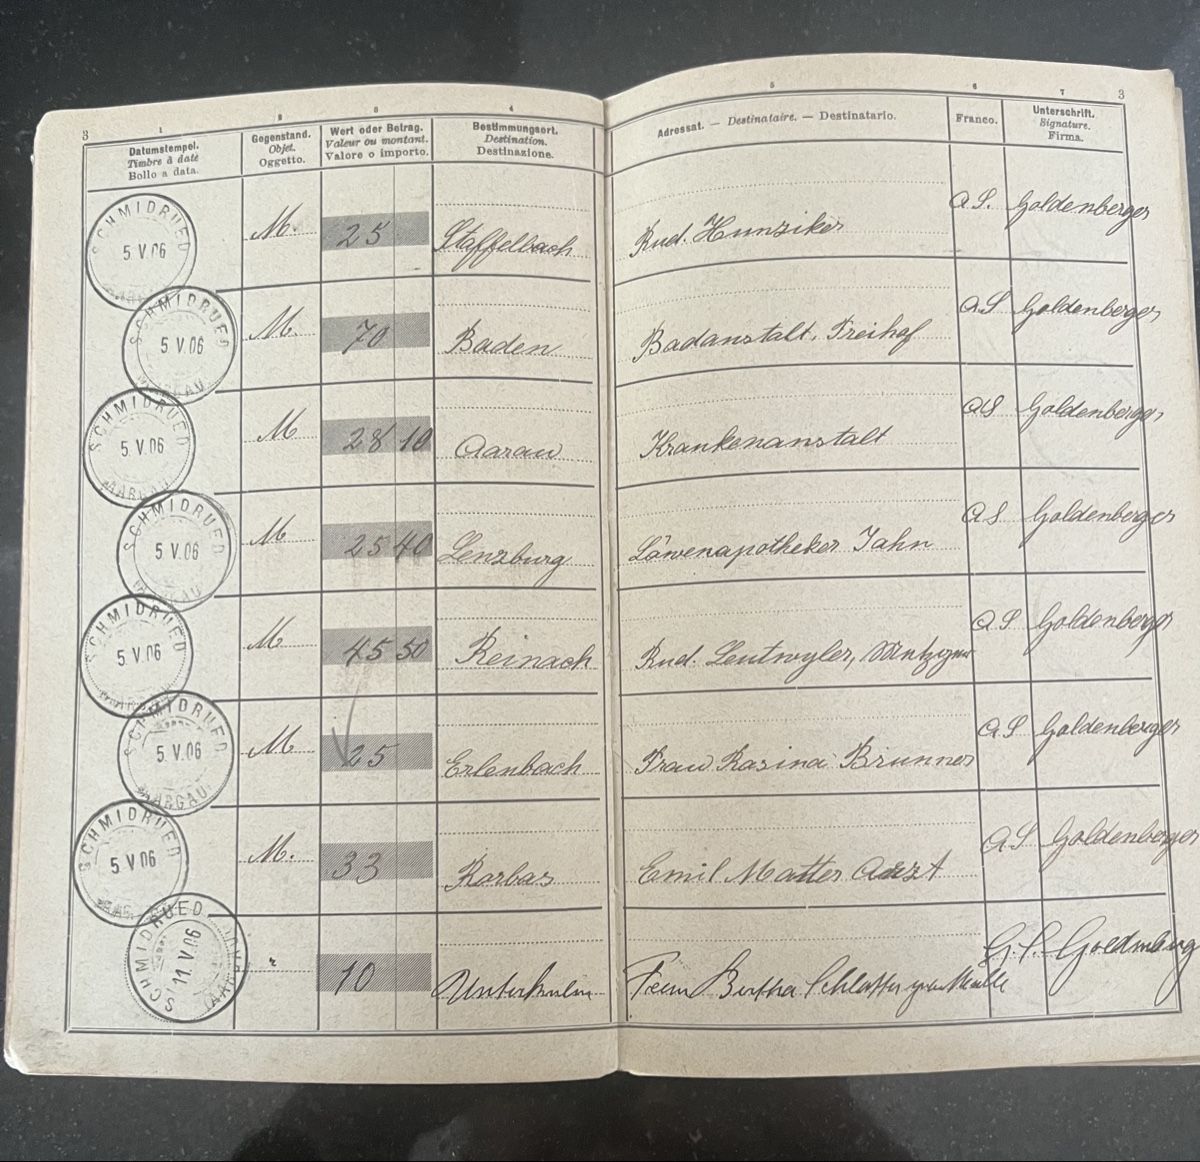 3 1 2 3 4 5 6 7 3
Datumstempel. Gegenstand. Wert oder Betrag. Bestimmungsort. Adressat. — Destinataire. — Destinatario. Franco. Unterschrift.
Timbre à date Objet. Valeur ou montant. Destination. Signature.
Bollo a data. Oggetto. Valore o importo. Destinazione. Firma.
SCHMIDRUED 5 V 06 M. 25 Staffelbach Rud. Hunziker A S. Goldenberger
SCHMIDRUED 5 V 06 AARGAU M. 70 Baden Badanstalt. Freihof A S Goldenberger
SCHMIDRUED 5 V 06 AARGAU M 28 10 Aarau Krankenanstalt A S Goldenberger
SCHMIDRUED 5 V 06 AARGAU M 25 40 Lenzburg Löwenapotheker Jahn A S Goldenberger
SCHMIDRUED 5 V 06 M 45 50 Reinach Rud. Leutwyler, A S Goldenberger
SCHMIDRUED 5 V 06 AARGAU M. 25 Erlenbach Frau Rosina Brunner A S Goldenberger
SCHMIDRUED 5 V 06 M. 33 Rorbas Emil Matter Arzt A S Goldenberger
SCHMIDRUED 11 V 06 AARGAU " 10 Unterkulm Bertha